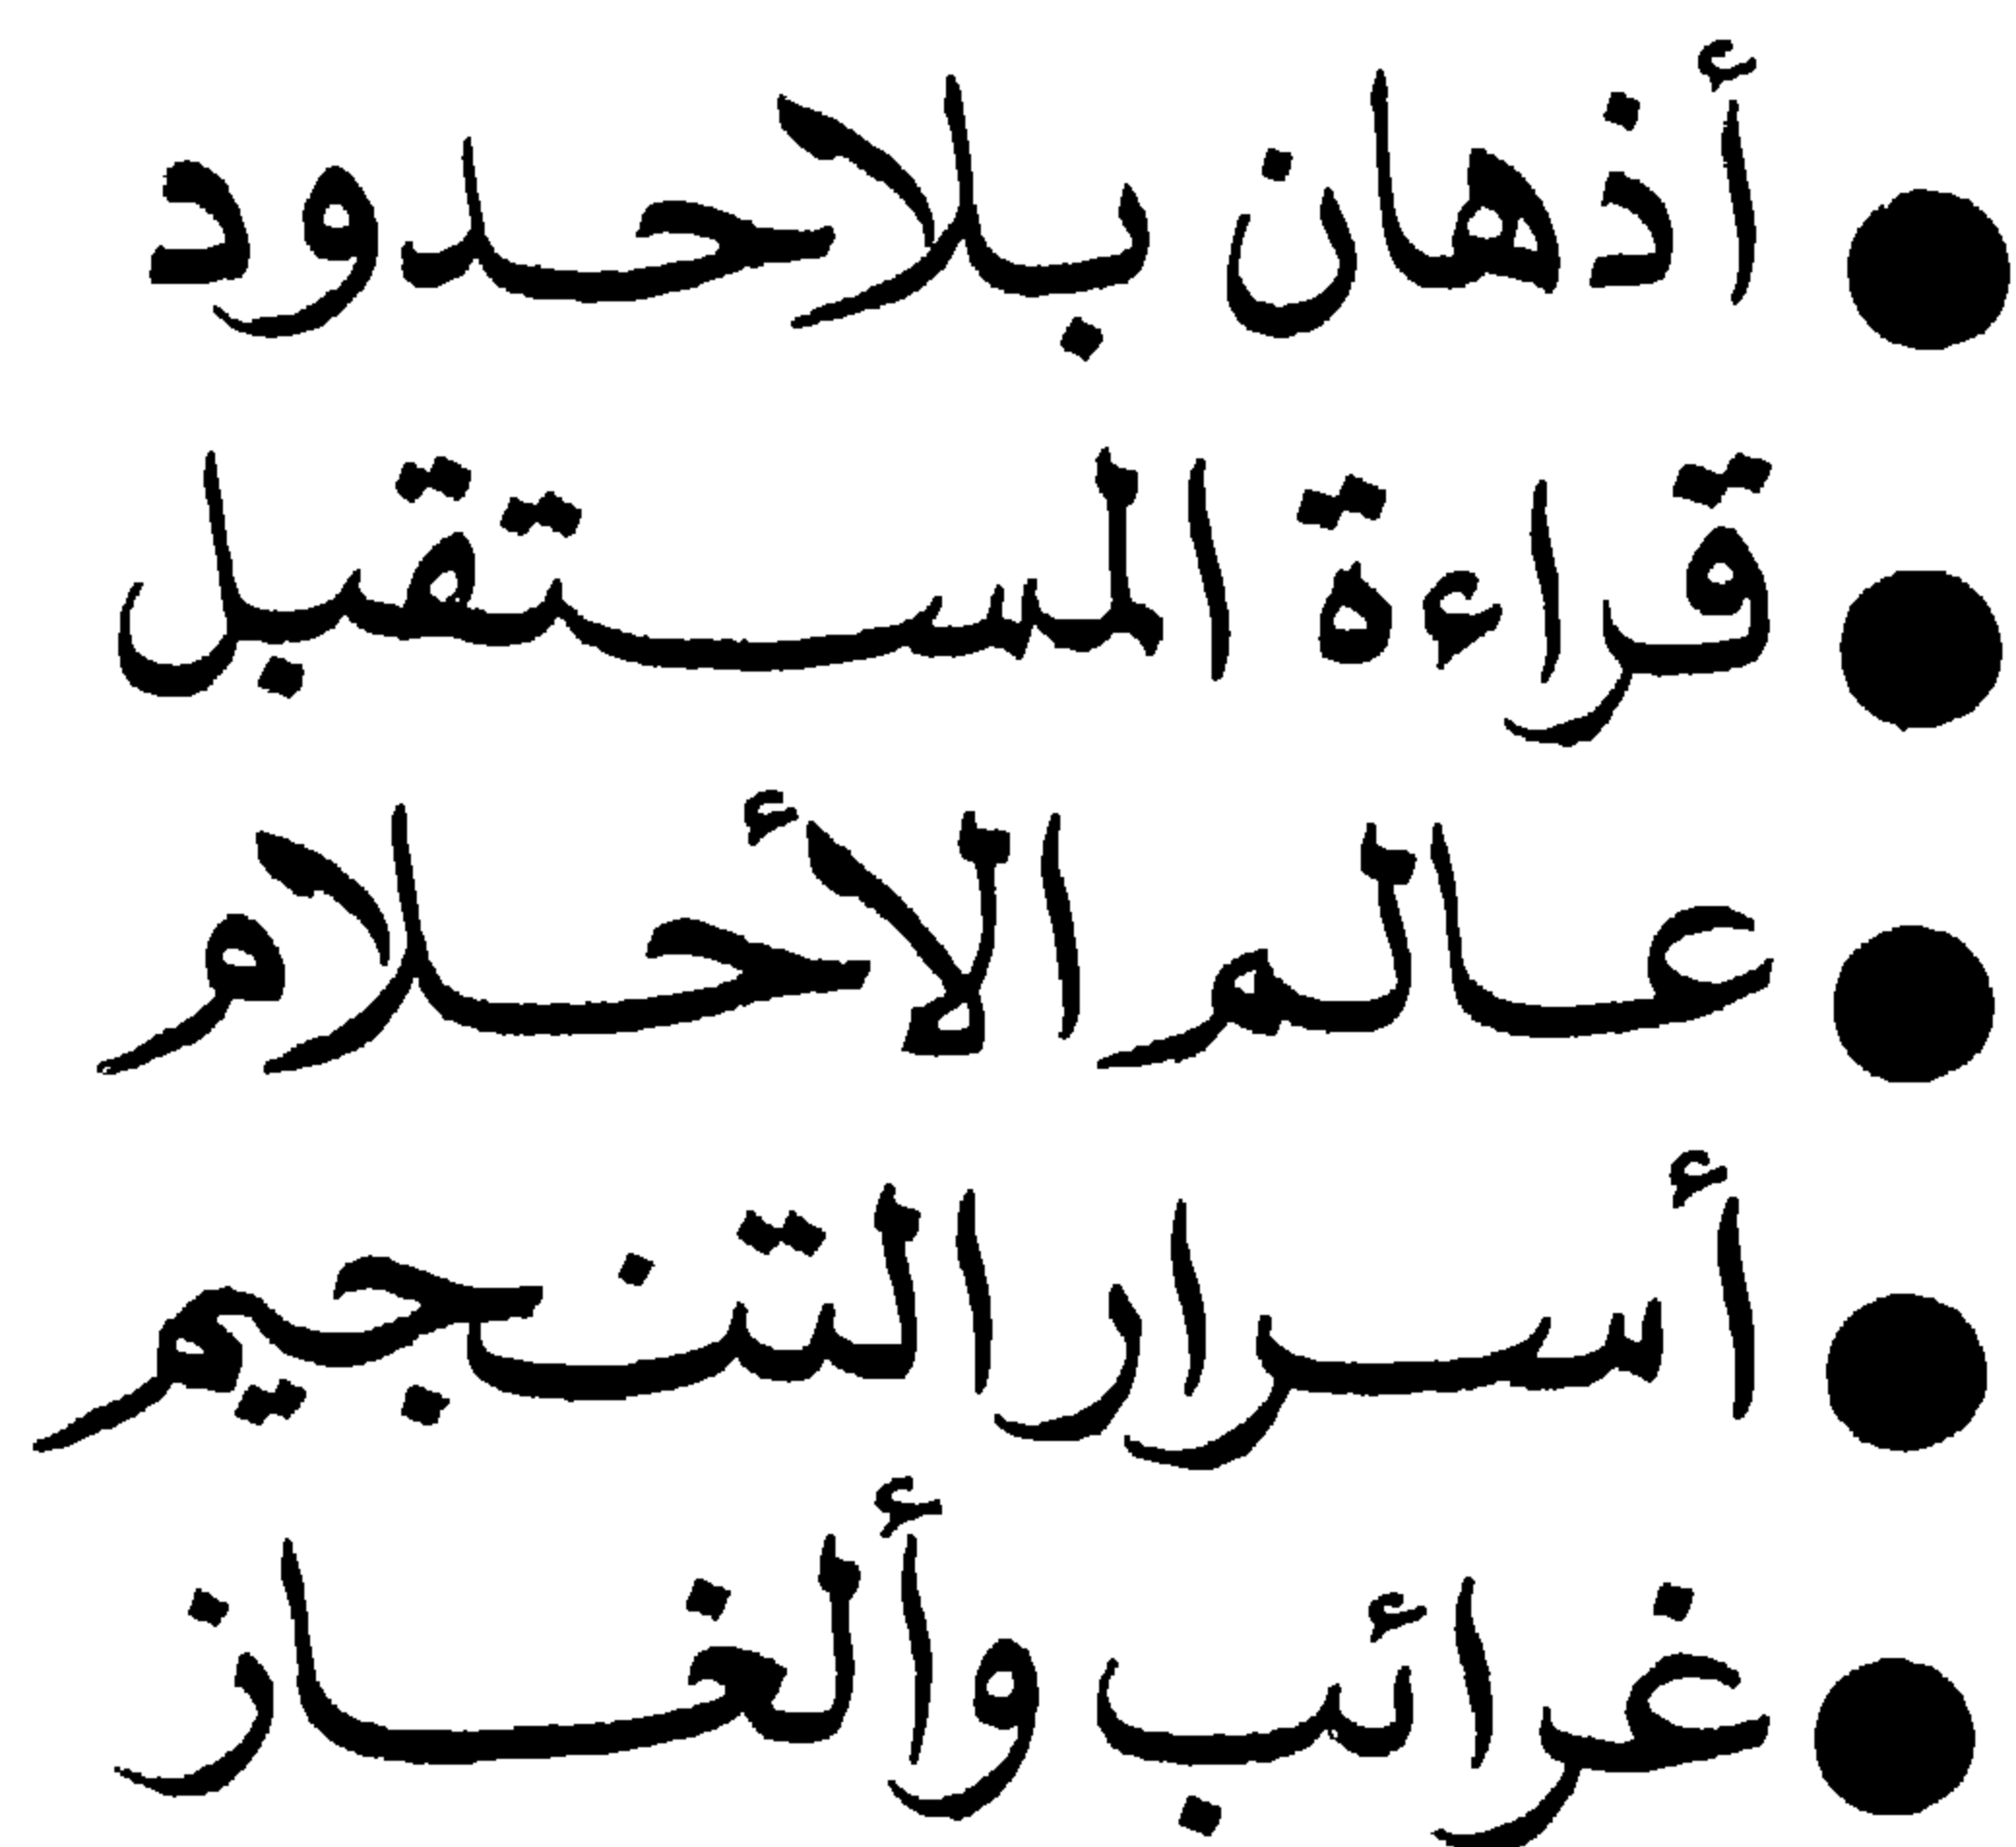 ● أذهان بلا حدود
● قراءة المستقبل
● عالم الأحلام
● أسرار التنجيم
● غرائب وألغاز